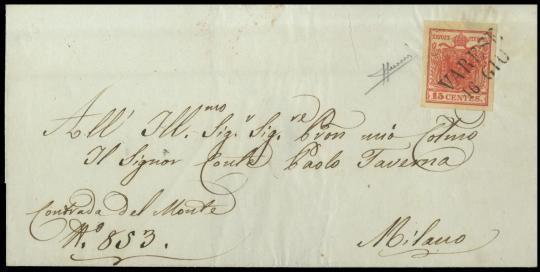 KKPOST-STEMPEL
15 CENTES.
VARESE.
16. GIU
All' Ill.mo Sig.r Sig.re Pron mio Colmo
Il Signor Conte Paolo Taverna
Contrada del Monte
N.o 853.
Milano